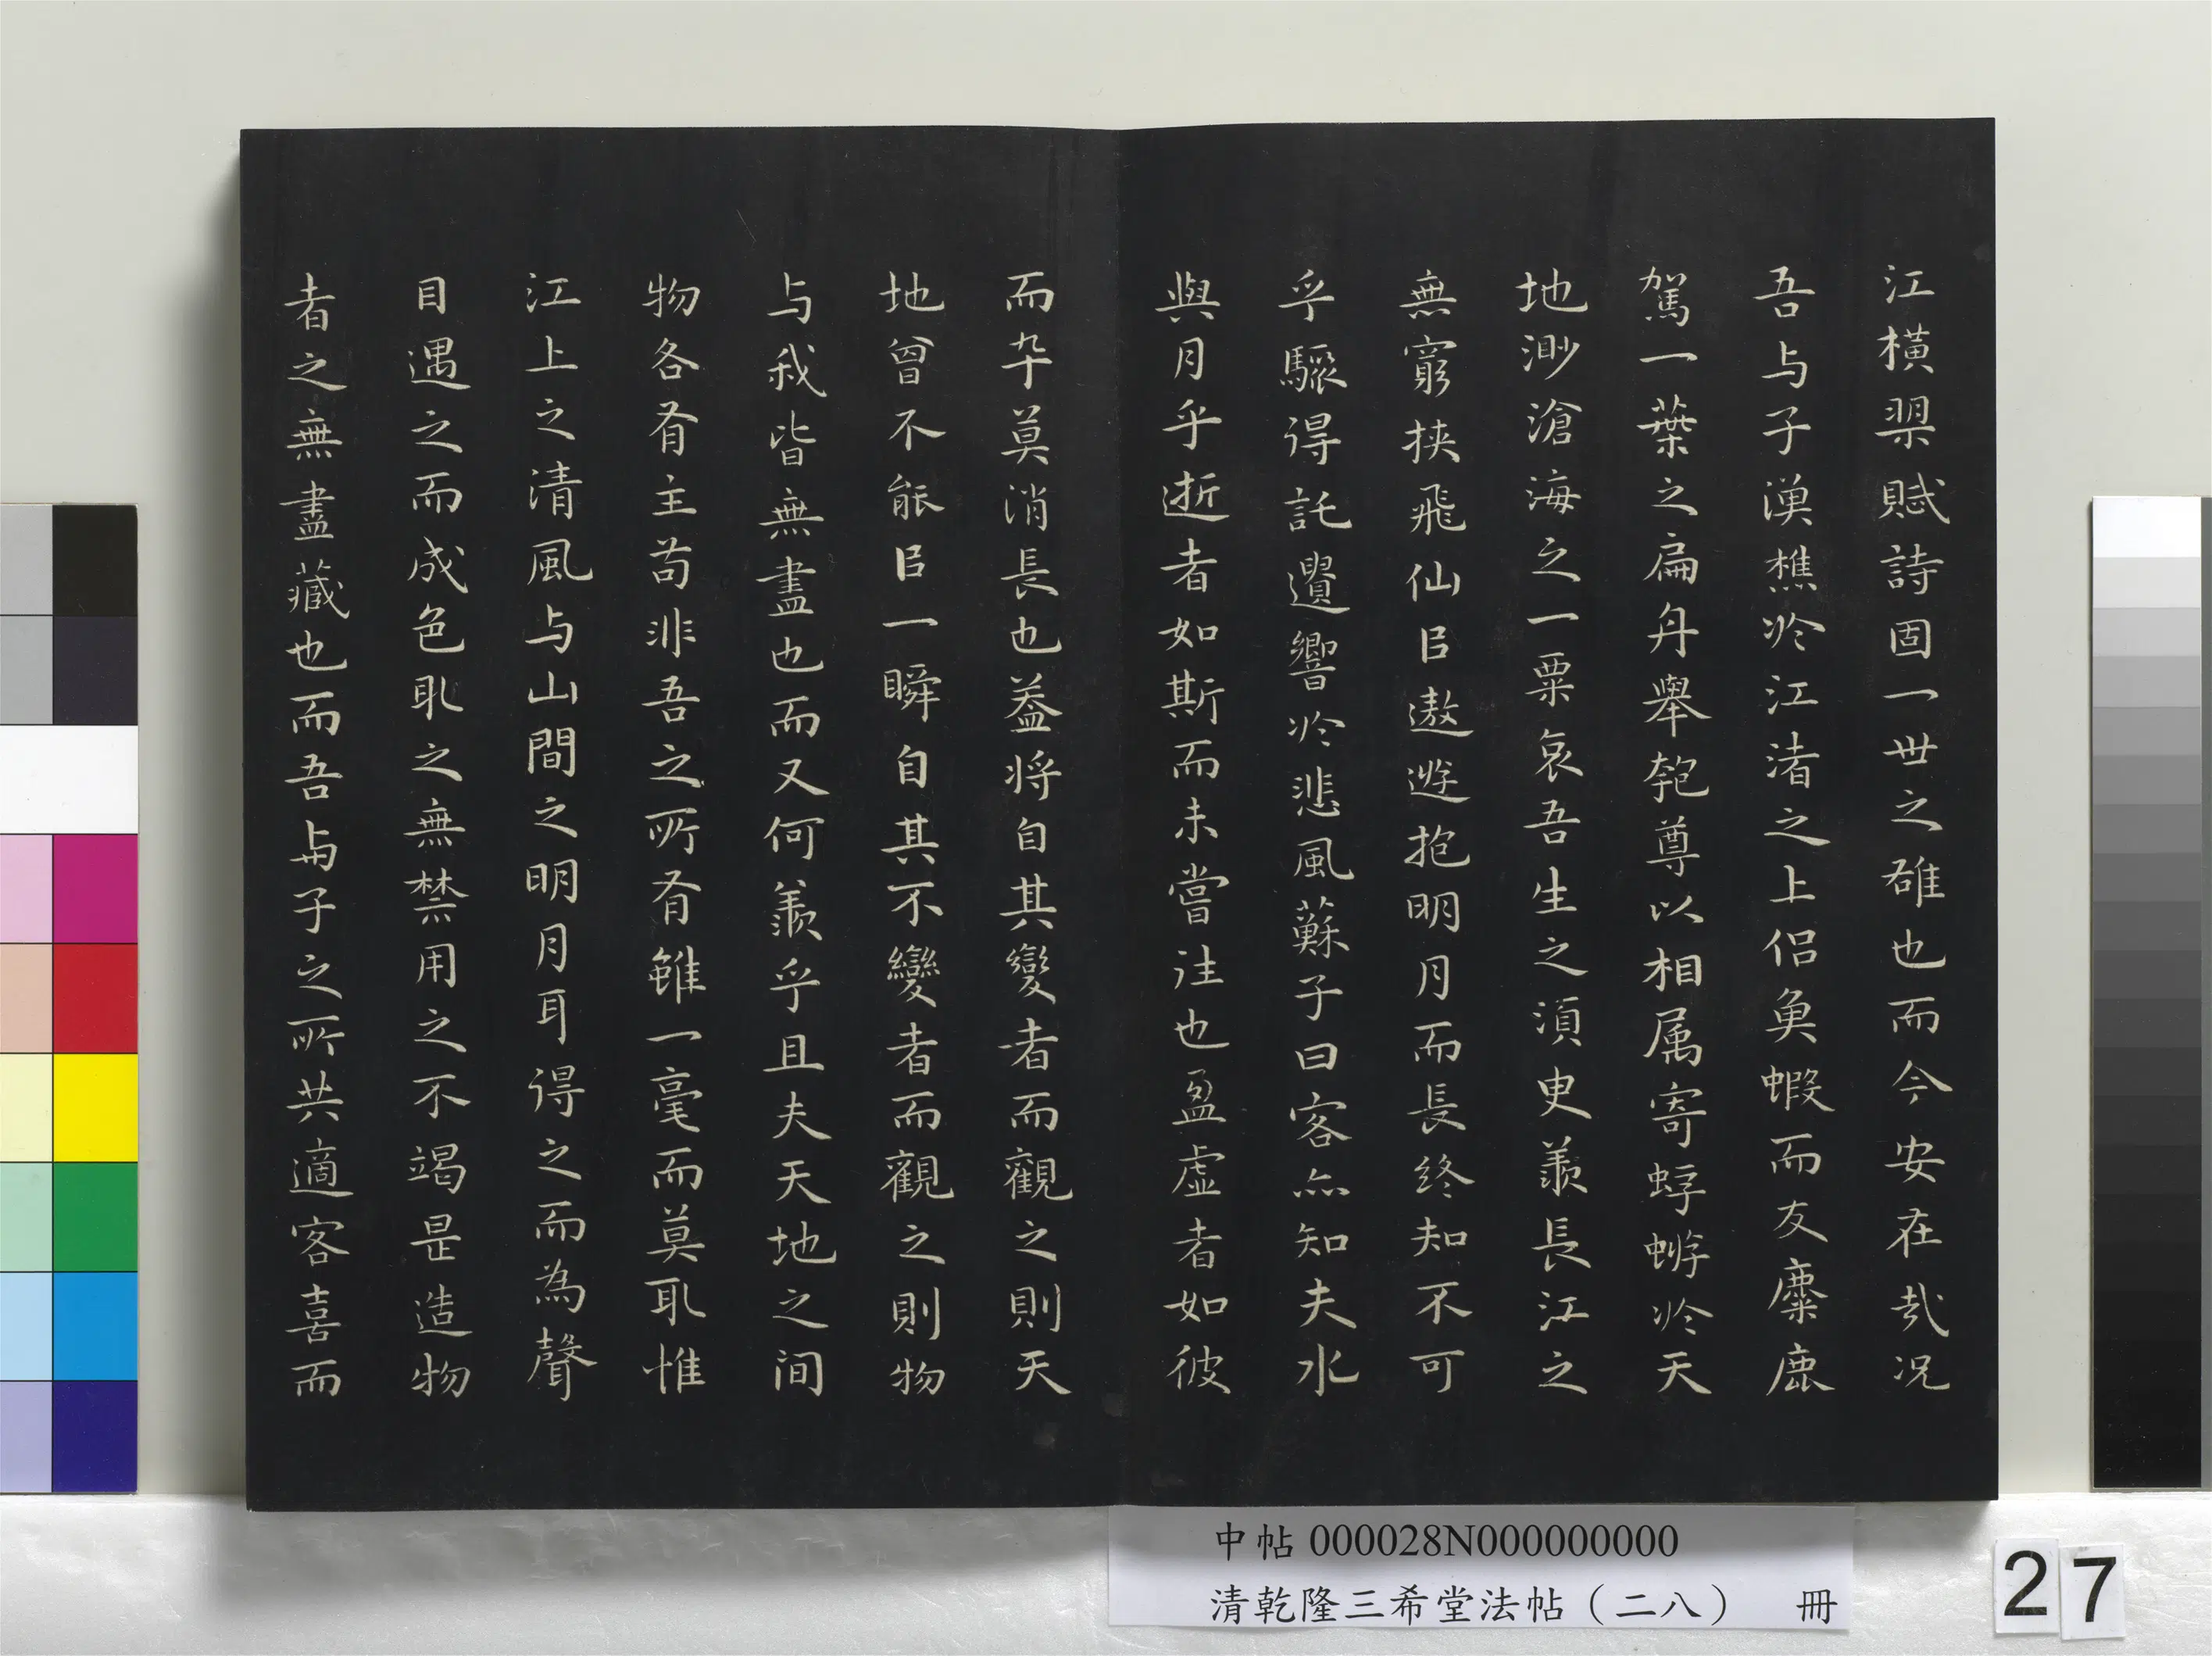 江橫槊賦詩固一世之雄也而今安在哉况
吾与子漁樵於江渚之上侣魚蝦而友麋鹿
駕一葉之扁舟舉匏尊以相属寄蜉蝣於天
地渺滄海之一粟哀吾生之須臾羨長江之
無窮挾飛仙㠯遨遊抱明月而長终知不可
乎驟得託遺響於悲風蘇子曰客亦知夫水
與月乎逝者如斯而未嘗往也盈虚者如彼
而卒莫消長也葢将自其變者而觀之則天
地曾不能㠯一瞬自其不變者而觀之則物
与我皆無盡也而又何羨乎且夫天地之间
物各有主苟非吾之所有雖一毫而莫取惟
江上之清風与山間之明月耳得之而為聲
目遇之而成色取之無禁用之不竭是造物
者之無盡藏也而吾与子之所共適客喜而
中帖 000028N000000000
清乾隆三希堂法帖（二八） 冊
27